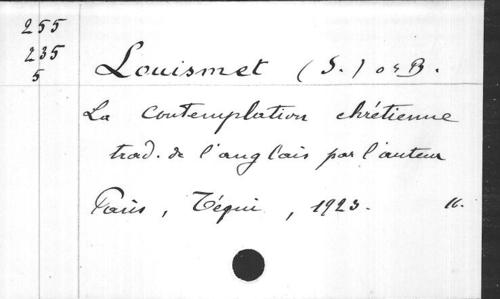 255
235
5
Louismet (S.) o.s.B.
La contemplation chrétienne
trad. de l'anglais par l'auteur
Paris, Téqui, 1923.